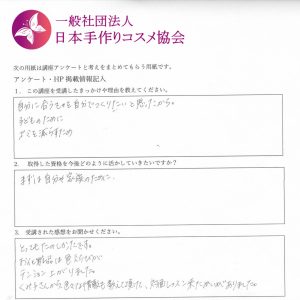 一般社団法人
日本手作りコスメ協会
次の用紙は講座アンケートと考えをまとめてもらう用紙です。
アンケート・HP 掲載情報記入
1. この講座を受講したきっかけや理由を教えてください。
自分に合うものを自分でつくりたいと思ったから。
子どものために
ゴミを減らすため
2. 取得した資格を今後どのように活かしていきたいですか？
まずは自分や家族のために。
3. 受講された感想をお聞かせください。
とってもたのしかったです。
お化粧品は目えらびが
テンション上がりました。
くみ子さんから色々な情報も教えて頂いて、対面レッスン来たかいがありました。